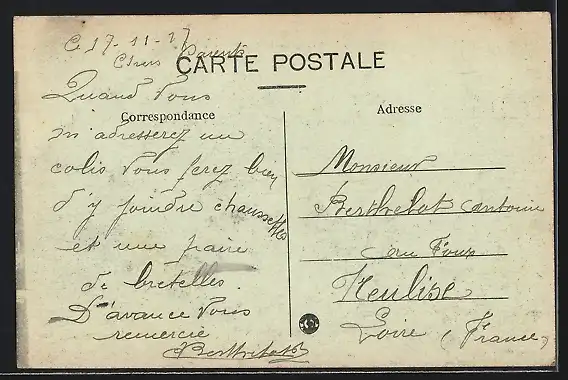 Ce 17-11-17
Chers Parents
CARTE POSTALE
Quand vous
Correspondance
m'adresserez un
colis vous ferez bien
d'y joindre chaussettes
et une paire
de bretelles.
D'avance vous
remercie
Berthelot
Adresse
Monsieur
Berthelot Antoine
au Four
Neulise
Loire (France)